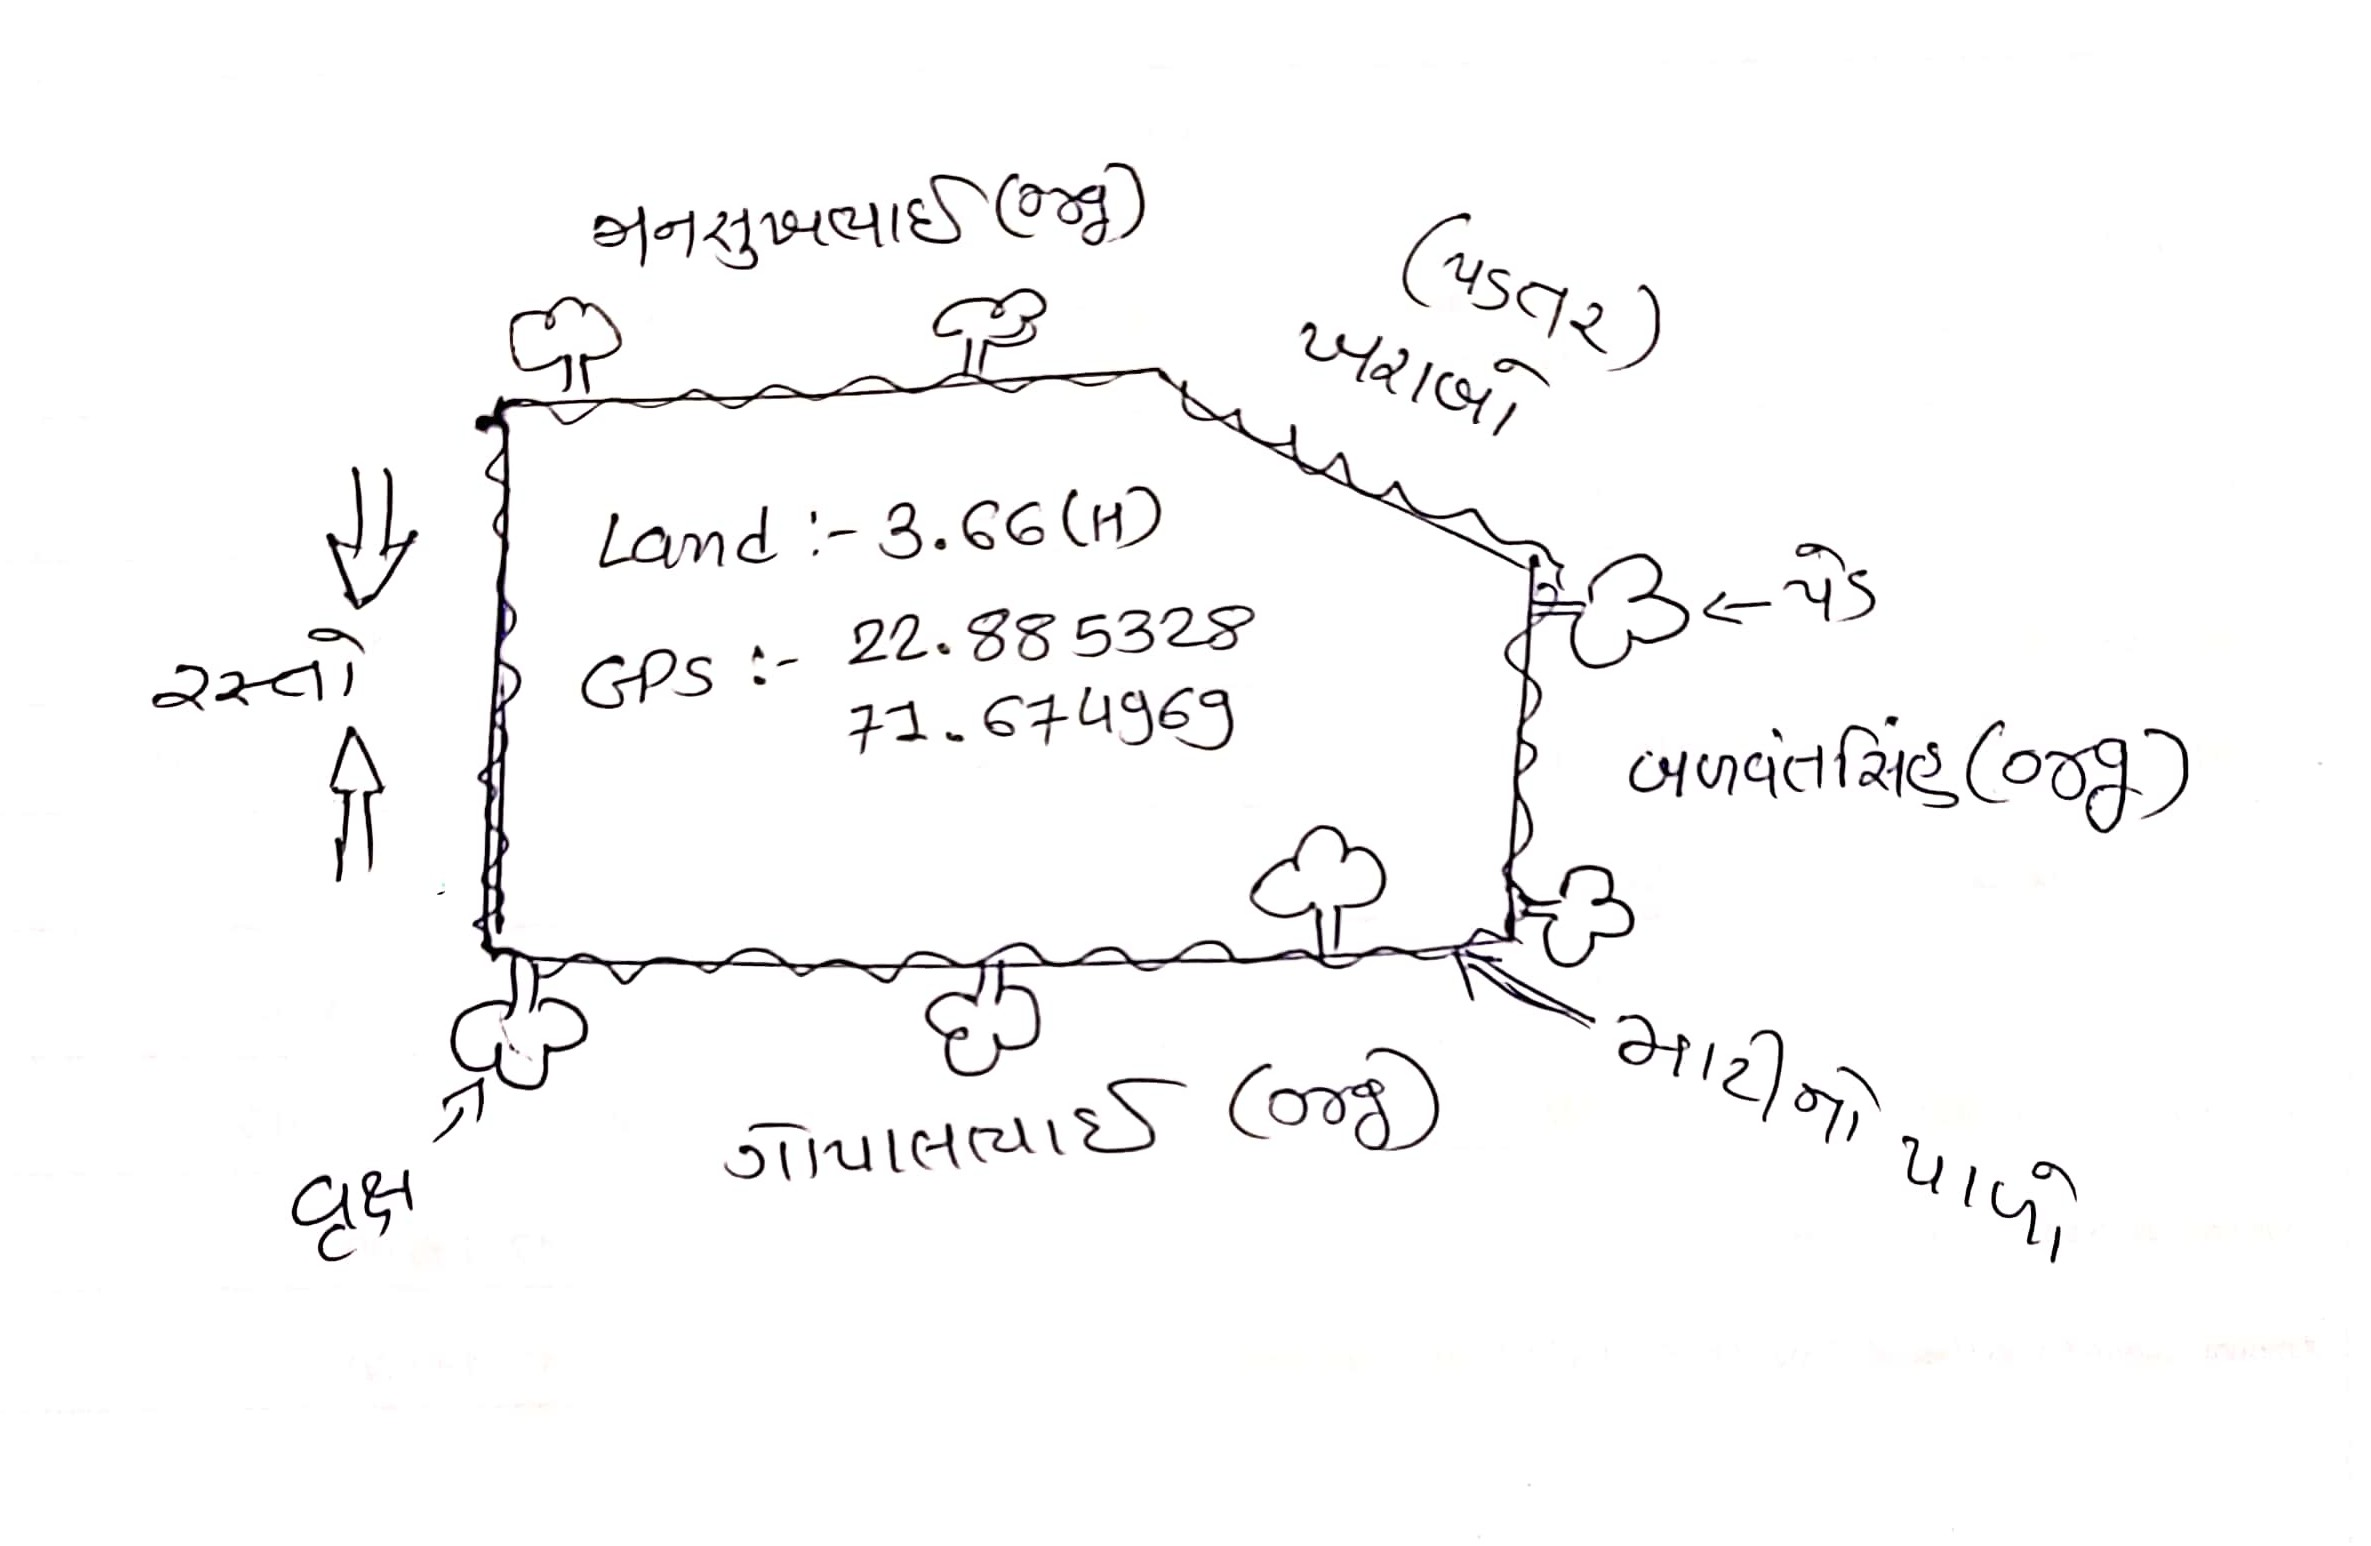 મનસુખભાઈ (જીજુ)
(પડતર)
ખરાબો
Land :- 3.66 (H)
GPS :- 22.885328
71.674969
← પેડ
રસ્તો
બળવંતસિંહ
માટીનો પાળો
ગોપાલભાઈ
વૃક્ષ